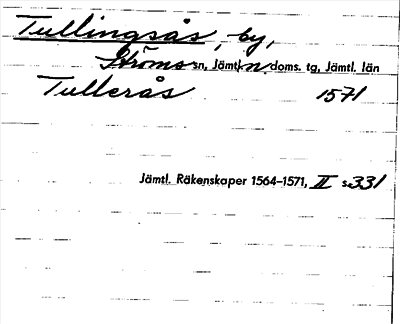 Tullingsås, by,
Ströms sn, Jämtl. n. doms. tg, Jämtl. län
Tullerås 1571
Jämtl. Räkenskaper 1564–1571, II s. 331